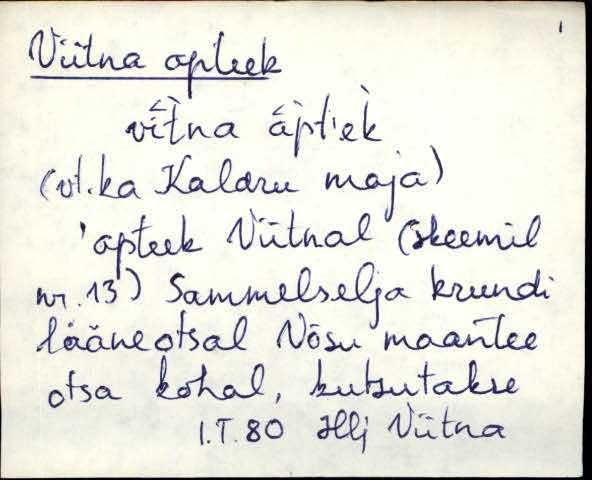 1
Viitna apteek
vì̬tna ä̬pt'èk
(vt. ka Kalaru maja)
'apteek Viitnal (skeemil
nr. 13) Sammelselja krundi
lääneotsal Võsu maantee
otsa kohal, kutsutakse
I.T. 80 Hlj Viitna